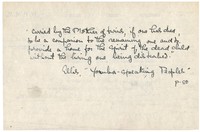 "carved by the Mother of twins, if one has died,
to be a companion to the remaining one and to
provide a home for the spirit of the dead child
without the living one being disturbed".
Ellis, "Yoruba-speaking Peoples"
p. 80